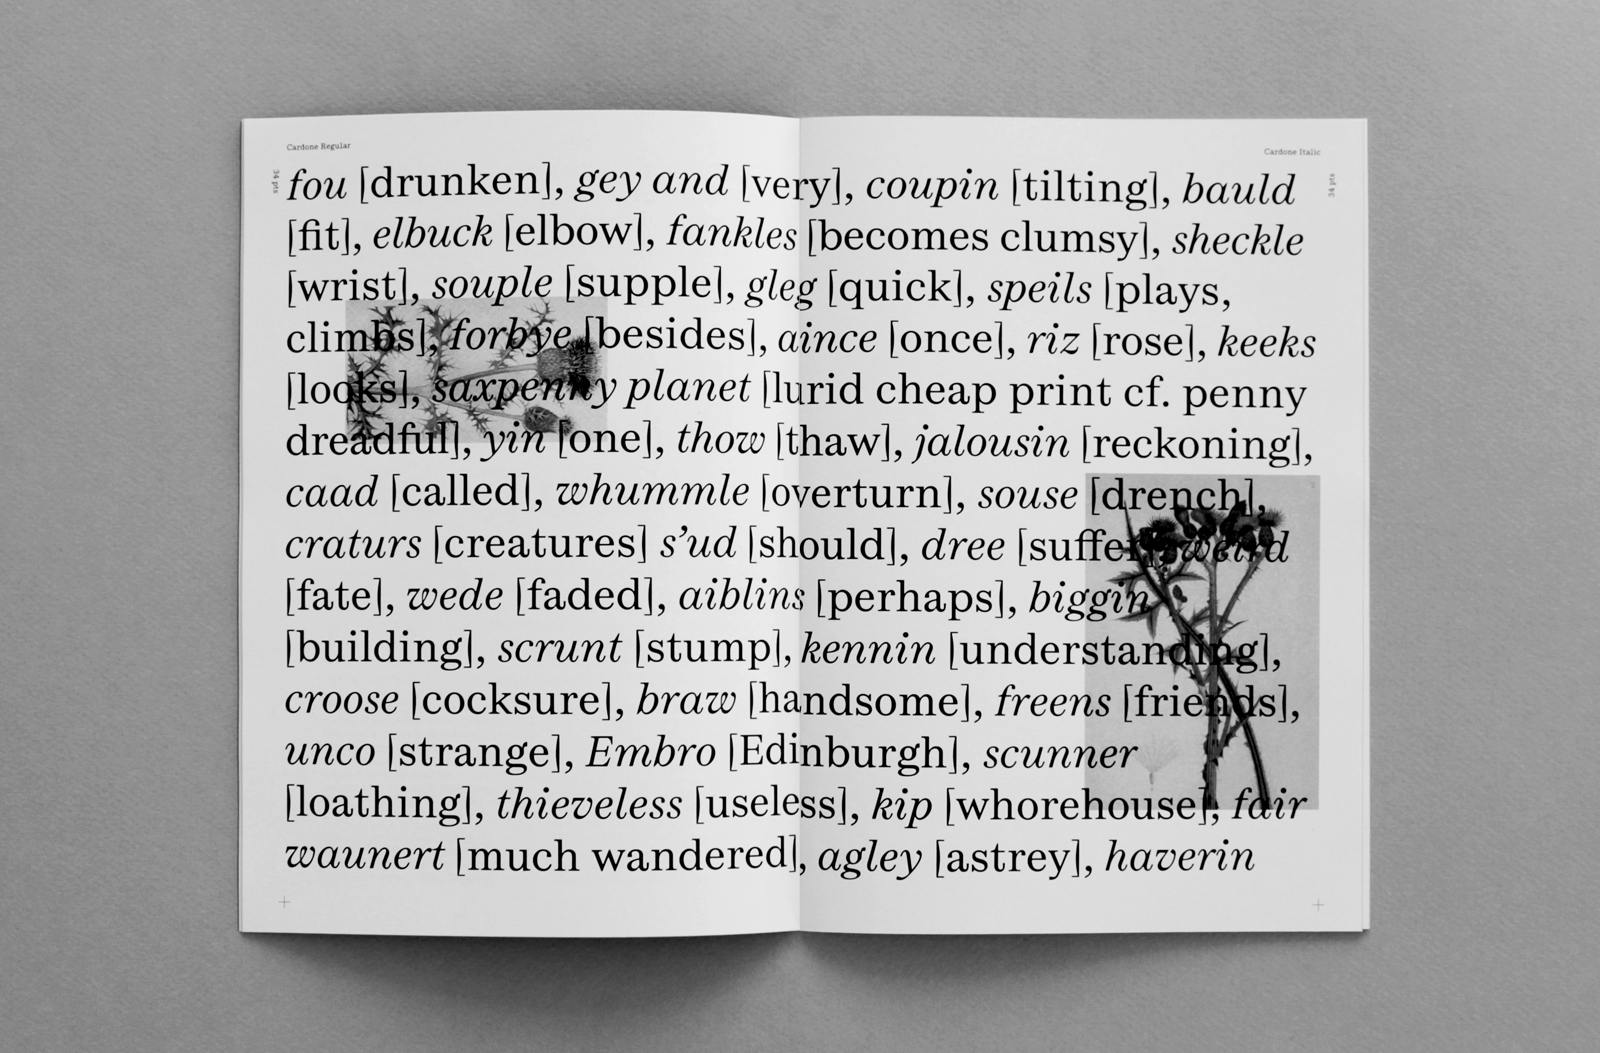 Cardone Regular
Cardone Italic
34 pts
34 pts
fou [drunken], gey and [very], coupin [tilting], bauld
[fit], elbuck [elbow], fankles [becomes clumsy], sheckle
[wrist], souple [supple], gleg [quick], speils [plays,
climbs], forbye [besides], aince [once], riz [rose], keeks
[looks], saxpenny planet [lurid cheap print cf. penny
dreadful], yin [one], thow [thaw], jalousin [reckoning],
caad [called], whummle [overturn], souse [drench],
craturs [creatures] s’ud [should], dree [suffer], weird
[fate], wede [faded], aiblins [perhaps], biggin
[building], scrunt [stump], kennin [understanding],
croose [cocksure], braw [handsome], freens [friends],
unco [strange], Embro [Edinburgh], scunner
[loathing], thieveless [useless], kip [whorehouse], fair
waunert [much wandered], agley [astrey], haverin